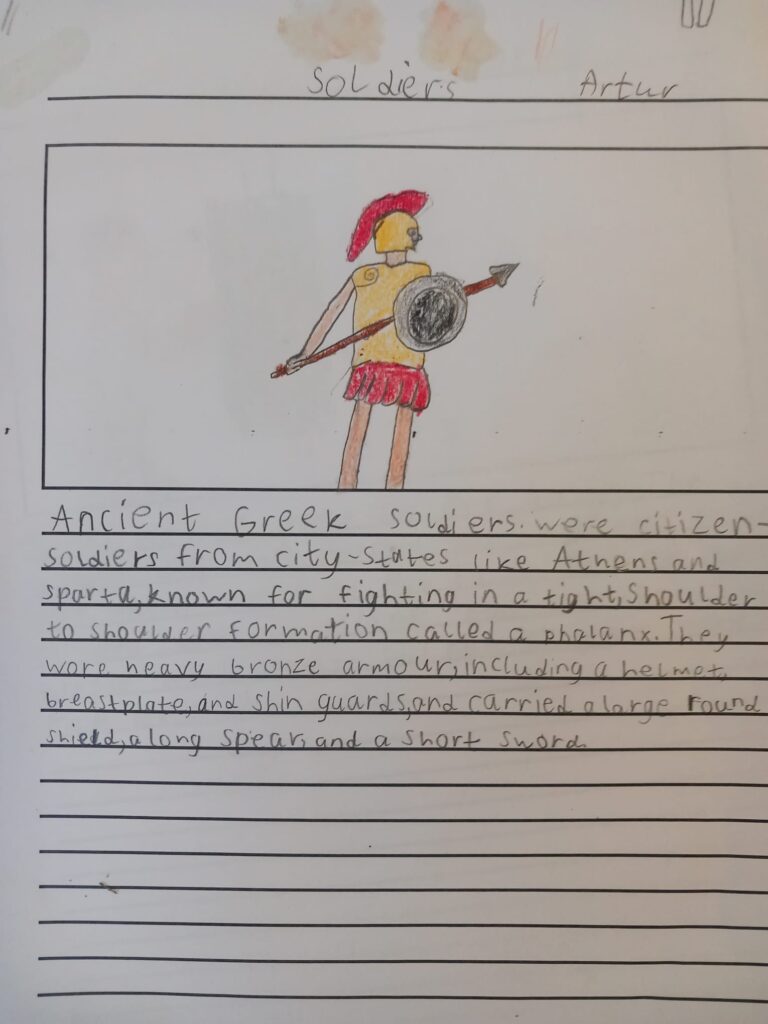 Soldiers Artur
Ancient Greek soldiers. were citizen-
soldiers from city-states like Athens and
sparta, known for fighting in a tight, shoulder
to shoulder formation called a phalanx. They
wore heavy bronze armour, including a helmet,
breastplate, and shin guards, and carried a large round
shield, a long spear, and a short sword